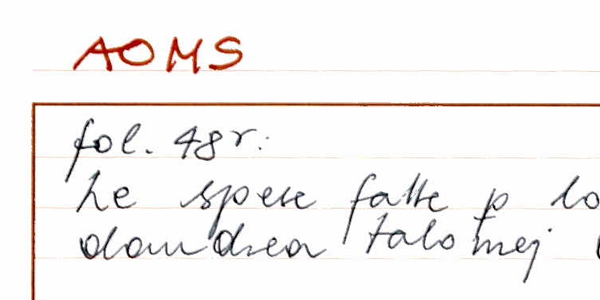 AOMS
fol. 48r:
Le spese fatte p lo
dandrea talomej